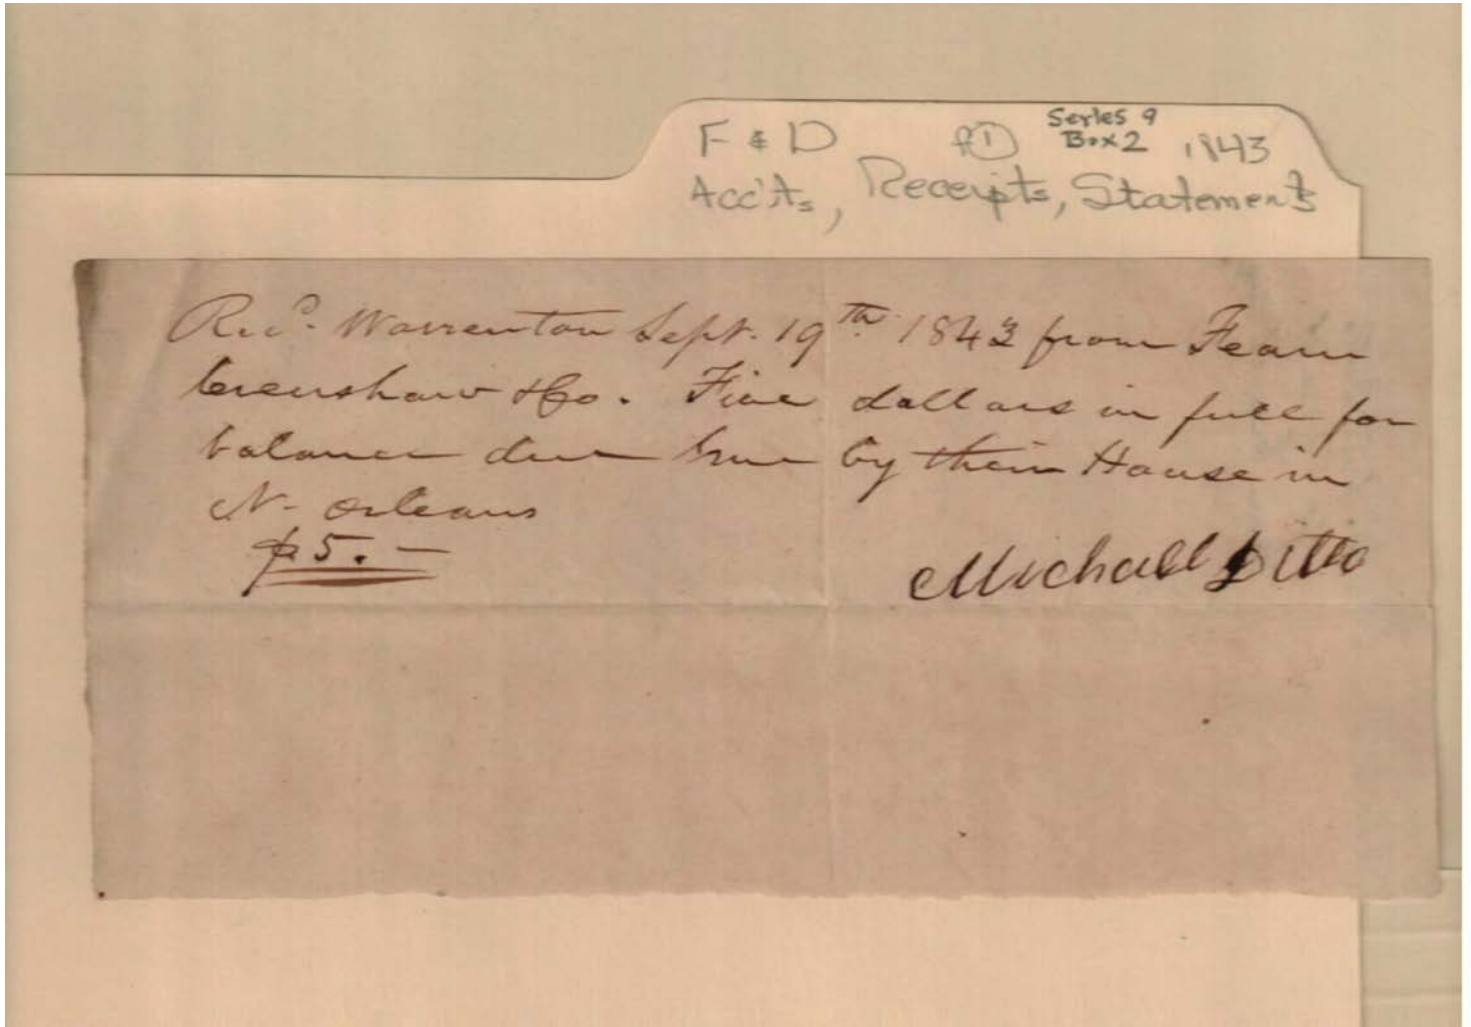 F & D f① Series 9
Box 2 1843
Acc'ts, Receipts, Statements
Recd. Warrenton Sept. 19th 1843 from Fearn
Crenshaw & Co. Five dollars in full for
balance due me by their House in
N. Orleans
$5. —
Michael Ditto